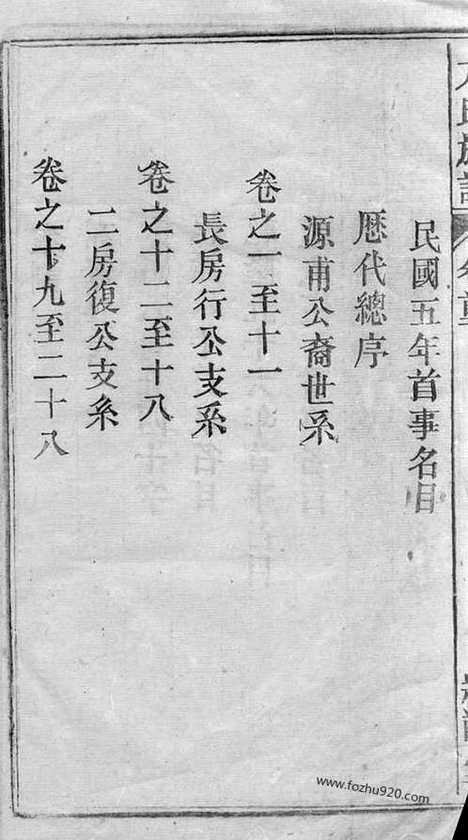 民國五年首事名目
歷代總序
源甫公裔世系
卷之一至十一
長房行公支系
卷之十二至十八
二房復公支系
卷之十九至二十八
www.fozhu920.com